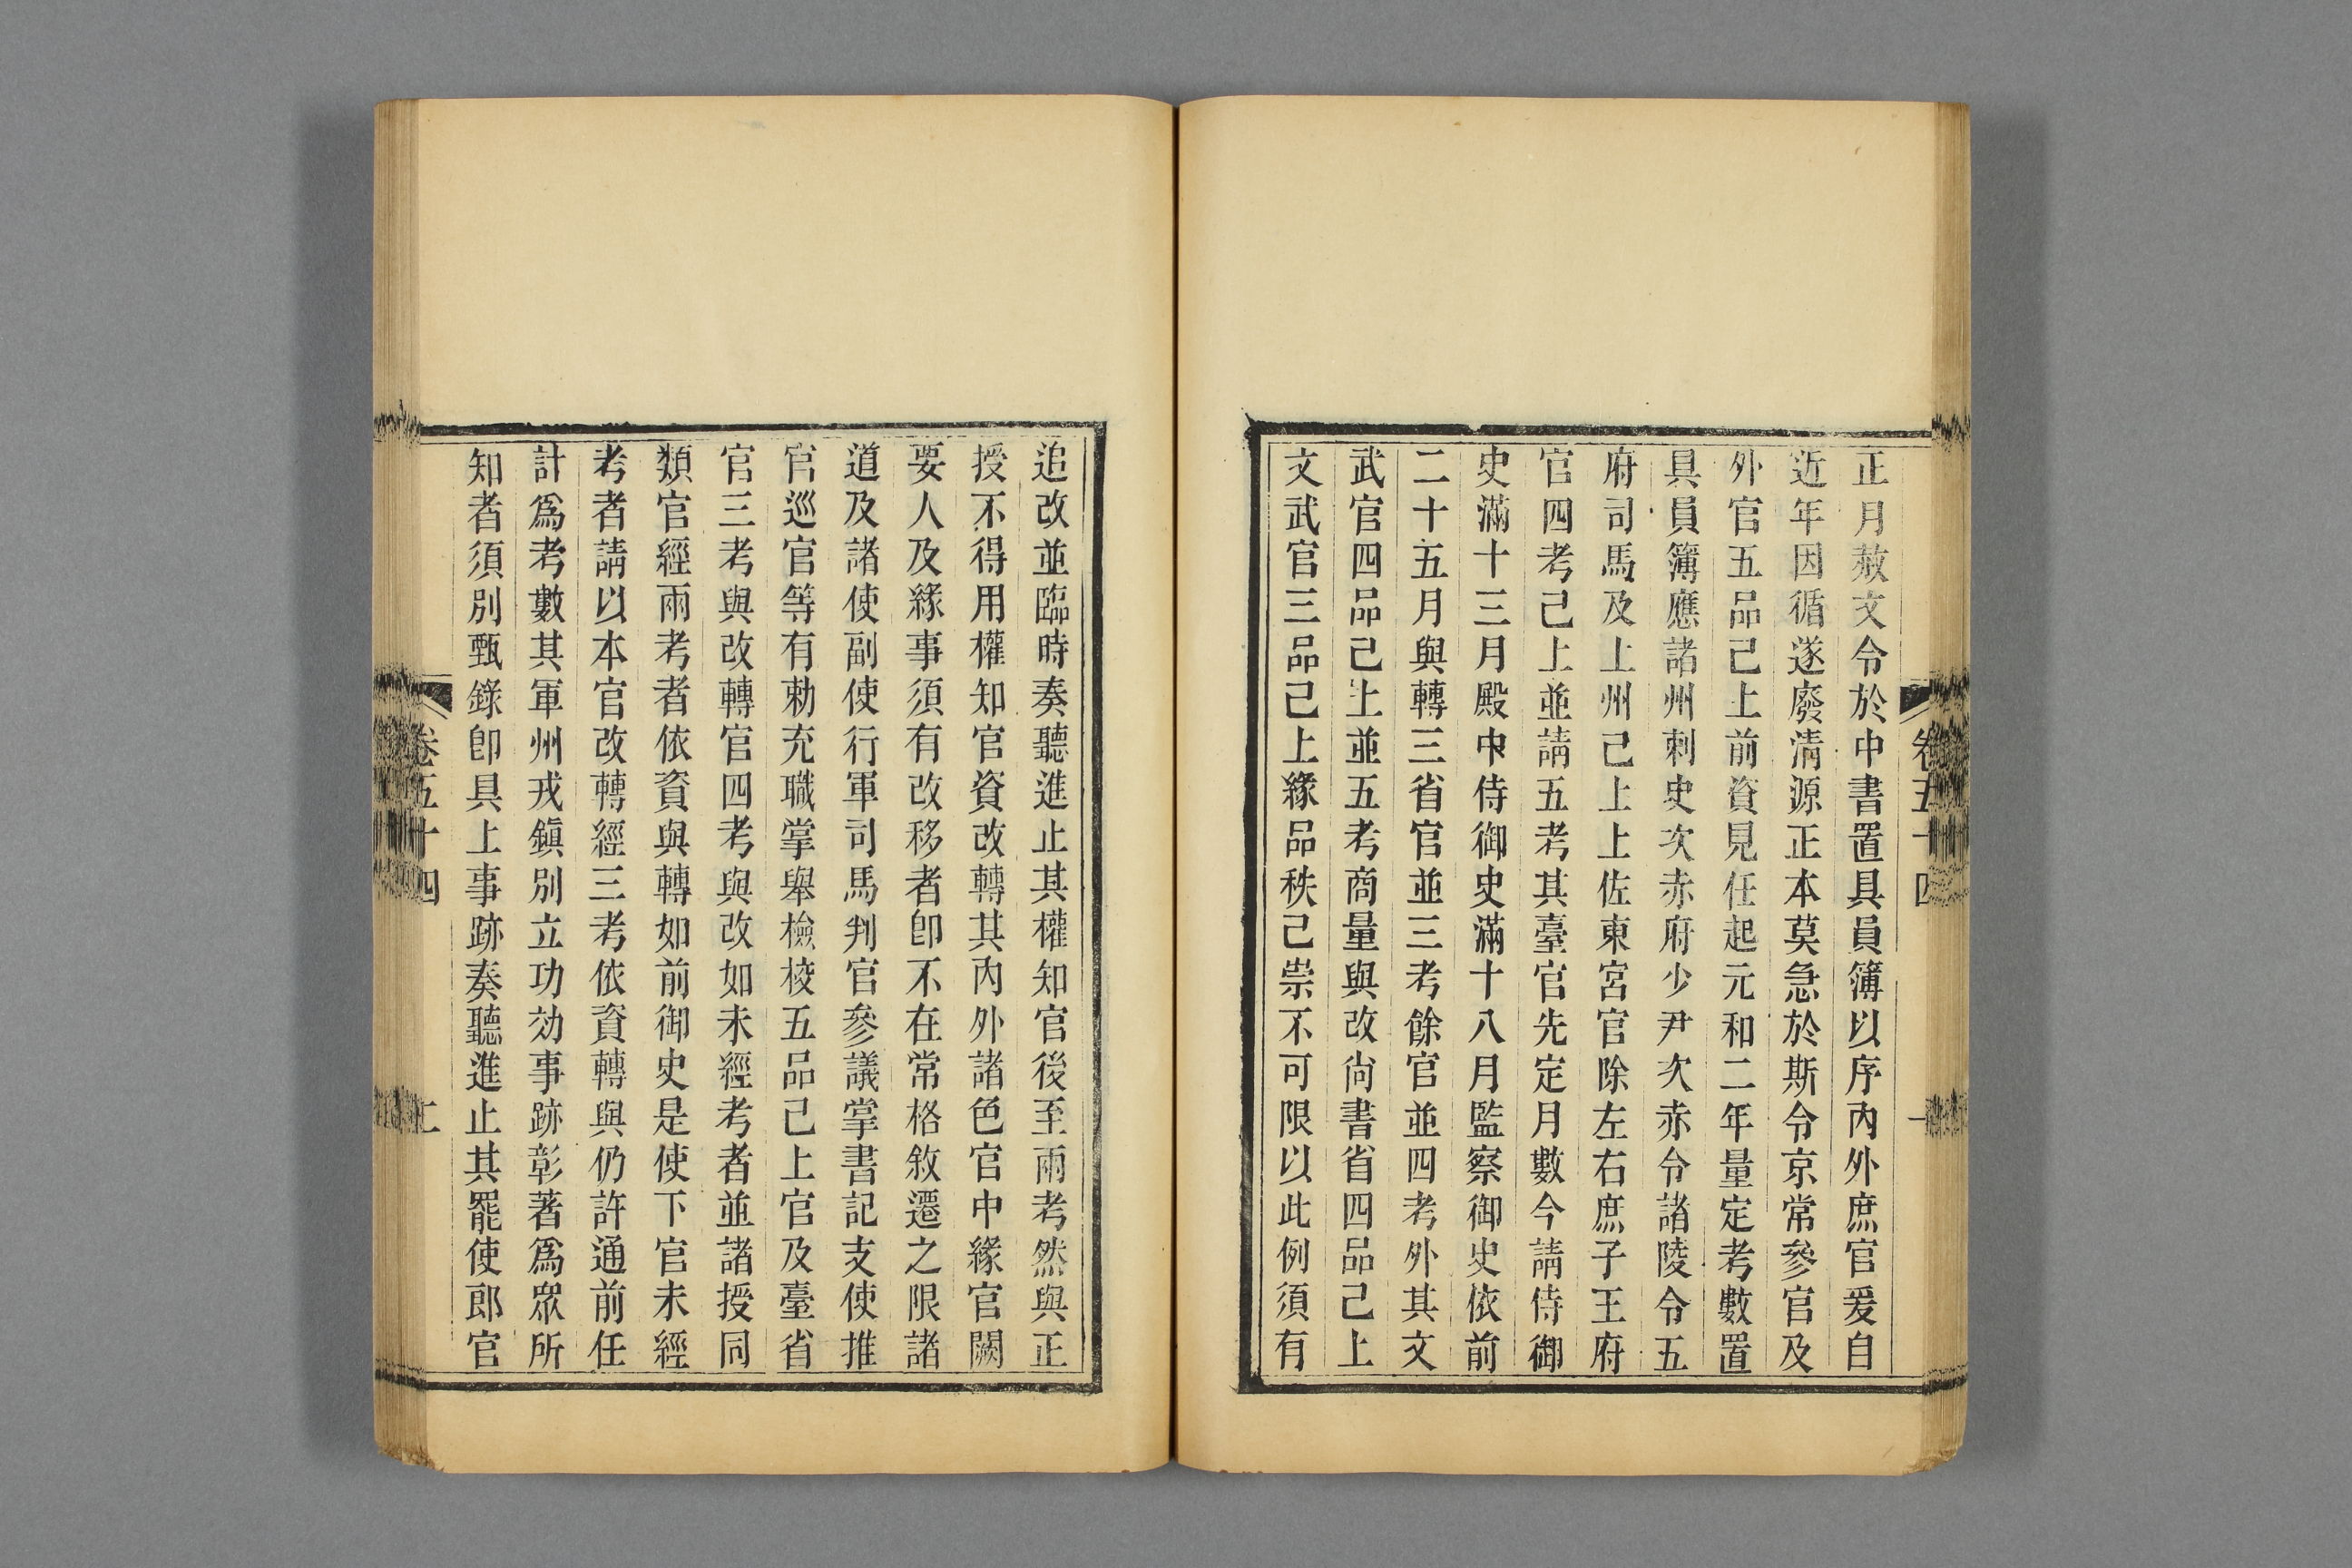 正月赦文令於中書置具員簿以序內外庶官爰自
近年因循遂廢淸源正本莫急於斯令京常參官及
外官五品己上前資見任起元和二年量定考數置
具員簿應諸州刺史次赤府少尹次赤令諸陵令五
府司馬及上州己上上佐東宮官除左右庶子王府
官四考己上並請五考其臺官先定月數今請侍御
史滿十三月殿中侍御史滿十八月監察御史依前
二十五月與轉三省官並三考餘官並四考外其文
武官四品己上並五考商量與改尙書省四品己上
文武官三品己上緣品秩己崇不可限以此例須有
卷五十四
追改並臨時奏聽進止其權知官後至兩考然與正
授不得用權知官資改轉其內外諸色官中緣官闕
要人及緣事須有改移者卽不在常格敘遷之限諸
道及諸使副使行軍司馬判官參議掌書記支使推
官巡官等有勅充職掌舉檢校五品己上官及臺省
官三考與改轉官四考與改如未經考者並諸授同
類官經兩考者依資與轉如前御史是使下官未經
考者請以本官改轉經三考依資轉與仍許通前任
計爲考數其軍州戎鎭別立功効事跡彰著爲眾所
知者須別甄錄卽具上事跡奏聽進止其罷使郎官
卷五十四